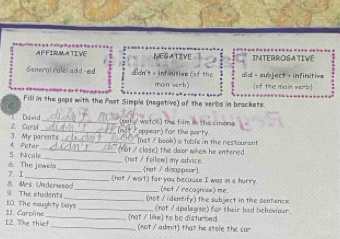 AFFIRMATIVE
General rule: add -ed
NEGATIVE
didn't + infinitive (of the
main verb)
INTERROGATIVE
did + subject + infinitive
(of the main verb)
Fill in the gaps with the Past Simple (negative) of the verbs in brackets.
1. David didn't (not / watch) the film at the cinema.
2. Carol didn't (not / appear) for the party.
3. My parents (not / book) a table in the restaurant.
4. Peter didn't (not / close) the door when he entered.
5. Nicole (not / follow) my advice.
6. The jewels (not / disappear).
7. I (not / wait) for you because I was in a hurry.
8. Mrs. Underwood (not / recognise) me.
9. The students (not / identify) the subject in the sentence.
10. The naughty boys (not / apologise) for their bad behaviour.
11. Caroline (not / like) to be disturbed.
12. The thief (not / admit) that he stole the car